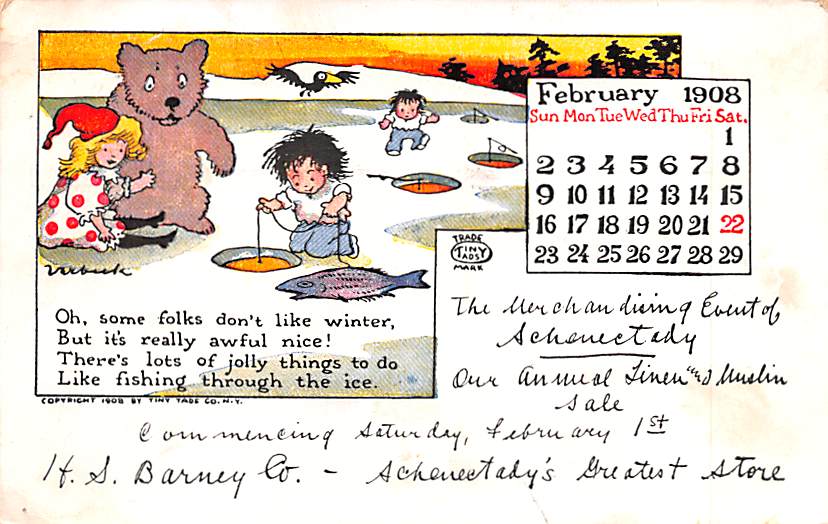 February 1908
Sun Mon Tue Wed Thu Fri Sat.
1
2 3 4 5 6 7 8
9 10 11 12 13 14 15
16 17 18 19 20 21 22
23 24 25 26 27 28 29
Verbeek
Oh, some folks don't like winter,
But it's really awful nice!
There's lots of jolly things to do
Like fishing through the ice.
COPYRIGHT 1908 BY TINY TADS CO. N.Y.
TRADE
TINY
TADS
MARK
The Merchandising Event of
Schenectady
Our Annual Linen and Muslin
Sale
Commencing Saturday, February 1st
H. S. Barney Co. - Schenectady's Greatest Store